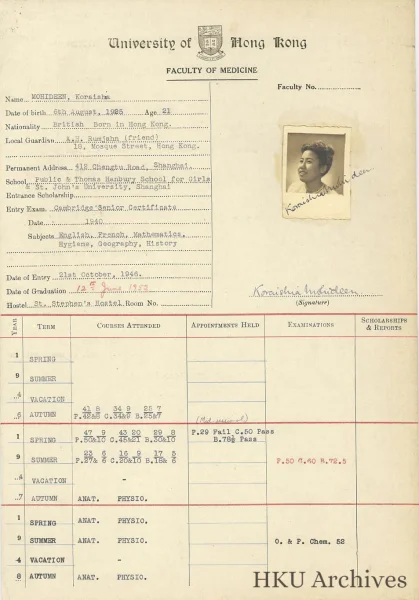 University of Hong Kong
FACULTY OF MEDICINE
Faculty No.
Name MOHIDEEN, Koraisha
Date of birth 8th August, 1925 Age 21
Nationality British Born in Hong Kong.
Local Guardian A.S. Rumjahn (friend)
18, Mosque Street, Hong Kong.
Permanent Address 412 Chengtu Road, Shanghai.
School Public & Thomas Hanbury School for Girls
& St. John's University, Shanghai
Entrance Scholarship
Entry Exam. Cambridge Senior Certificate
Date 1940
Subjects English, French, Mathematics,
Hygiene, Geography, History
Koraishia Mohideen
Date of Entry 21st October, 1946.
Date of Graduation 12th June 1953
Hostel St. Stephen's Hostel Room No.
Koraishia Mohideen
(Signature)
YEAR TERM COURSES ATTENDED APPOINTMENTS HELD EXAMINATIONS SCHOLARSHIPS & REPORTS
1 SPRING
9 SUMMER
4 VACATION
6 AUTUMN 41 8 34 9 25 7
P.42&8 C.34&9 B.25&7
1 SPRING 47 9 43 20 29 8 P.29 Fail C.50 Pass
P.50&10 C.45&21 B.30&10 B.78½ Pass
9 SUMMER 23 6 16 9 17 5 P.50 C.40 B.72.5
P.27&6 C.20&10 B.18&6
4 VACATION -
7 AUTUMN ANAT. PHYSIO.
1 SPRING ANAT. PHYSIO.
9 SUMMER ANAT. PHYSIO. O. & P. Chem. 52
4 VACATION -
8 AUTUMN ANAT. PHYSIO.
HKU Archives